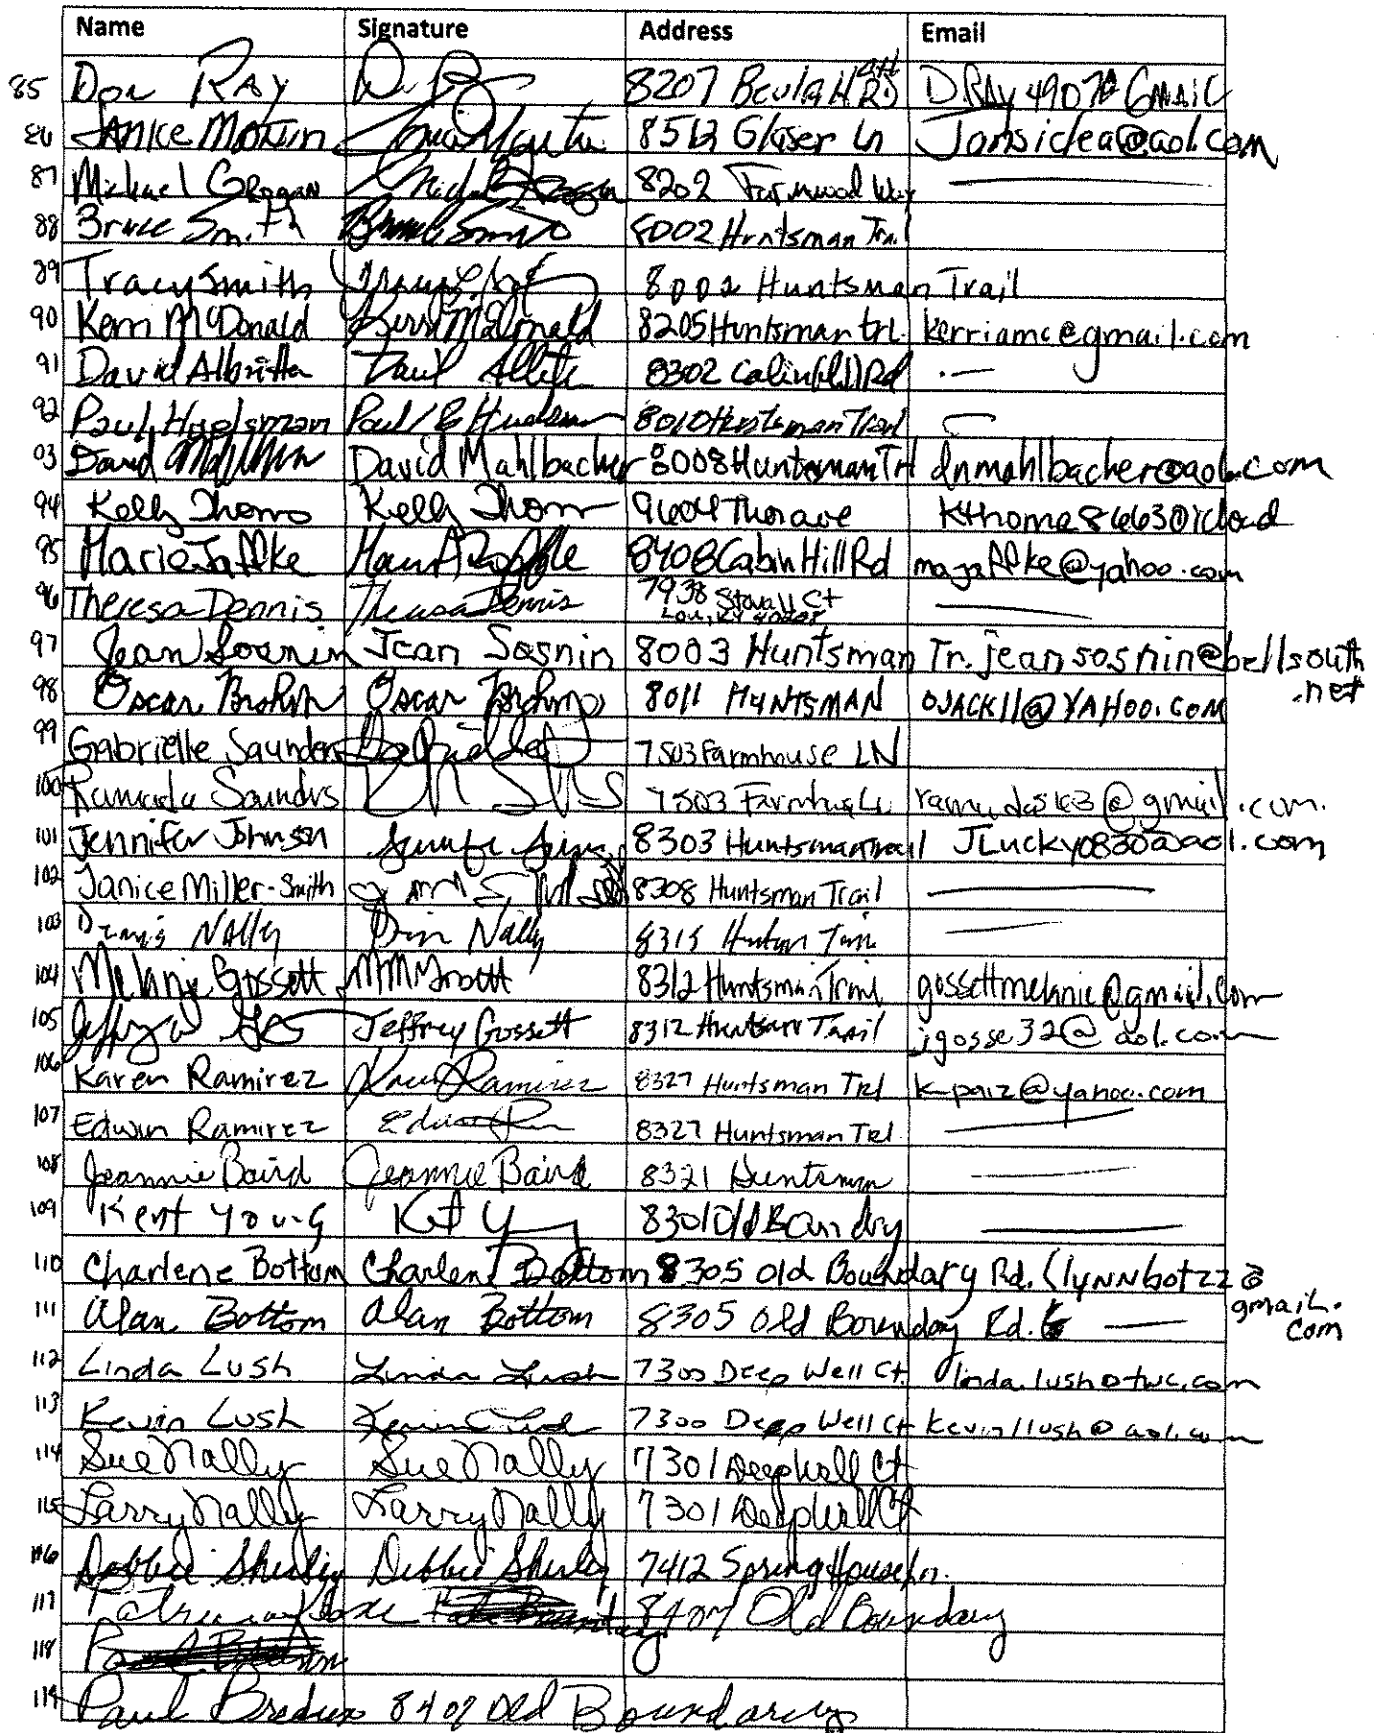 Name Signature Address Email
85 Don RAY 8207 Beulah Rd DRAY4907@GMAIL
86 Janice Martin 8512 Glaser Ln @aol.com
87 Michael Grogan 8202 Farmwood Way
88 Bruce Smith 8002 Huntsman Trail
89 Tracy Smith 8002 Huntsman Trail
90 Kerri McDonald Kerri McDonald 8205 Huntsman trl. kerriamc@gmail.com
91 David Albritton 8302 Rd
92 Paul Huelsman Paul 8010 Huntsman Trail
93 David David Mahlbacher 8008 Huntsman Trl dnmahlbacher@aol.com
94 Kelly Thoma Kelly Thoma
95 Marie Jaffke 8408 Cabin Hill Rd majaffke@yahoo.com
96 Theresa Dennis Theresa Dennis 7938 Stovall Ct
Lou, KY
97 Jean Sosnin Jean Sosnin 8003 Huntsman Tr. jeansosnin@bellsouth
.net
98 Oscar Oscar 8011 HUNTSMAN OJACK11@YAHOO.COM
99 Gabrielle Saunders 7503 Farmhouse LN
100 Saunders 7503 @gmail.com.
101 Jennifer Johnson 8303 Huntsman Trail JLucky0830@aol.com
102 Janice Miller-Smith 8308 Huntsman Trail
103 Dennis Nally Nally 8315
104 Melanie Gossett 8312 Huntsman Trail gossettmelanie@gmail.com
105 Jeffrey Gossett 8312 Huntsman Trail jgosse32@aol.com
106 Karen Ramirez Karen Ramirez 8327 Huntsman Trl k-paiz@yahoo.com
107 Edwin Ramirez 8327 Huntsman Trl
108 Jeannie Baird Jeannie Baird 8321 Huntsman
109 Kent Young 8301 Old
110 Charlene Bottom Charlene Bottom 8305 Old Boundary Rd. clynnbotzz@
gmail.
com
111 Alan Bottom Alan Bottom 8305 Old Boundary Rd.
112 Linda Lush Linda Lush 7300 Deep Well Ct. linda.lush@twc.com
113 Kevin Lush 7300 Deep Well Ct kevinllush@aol.com
114 Sue Nally Sue Nally 7301 Deepwell Ct
115 Larry Nally Larry Nally 7301 Deepwell Ct
116 Debbie Shirley Debbie Shirley 7412 Spring House Ln.
117 8407 Old Boundary
118
119 Paul 8407 Old Boundary